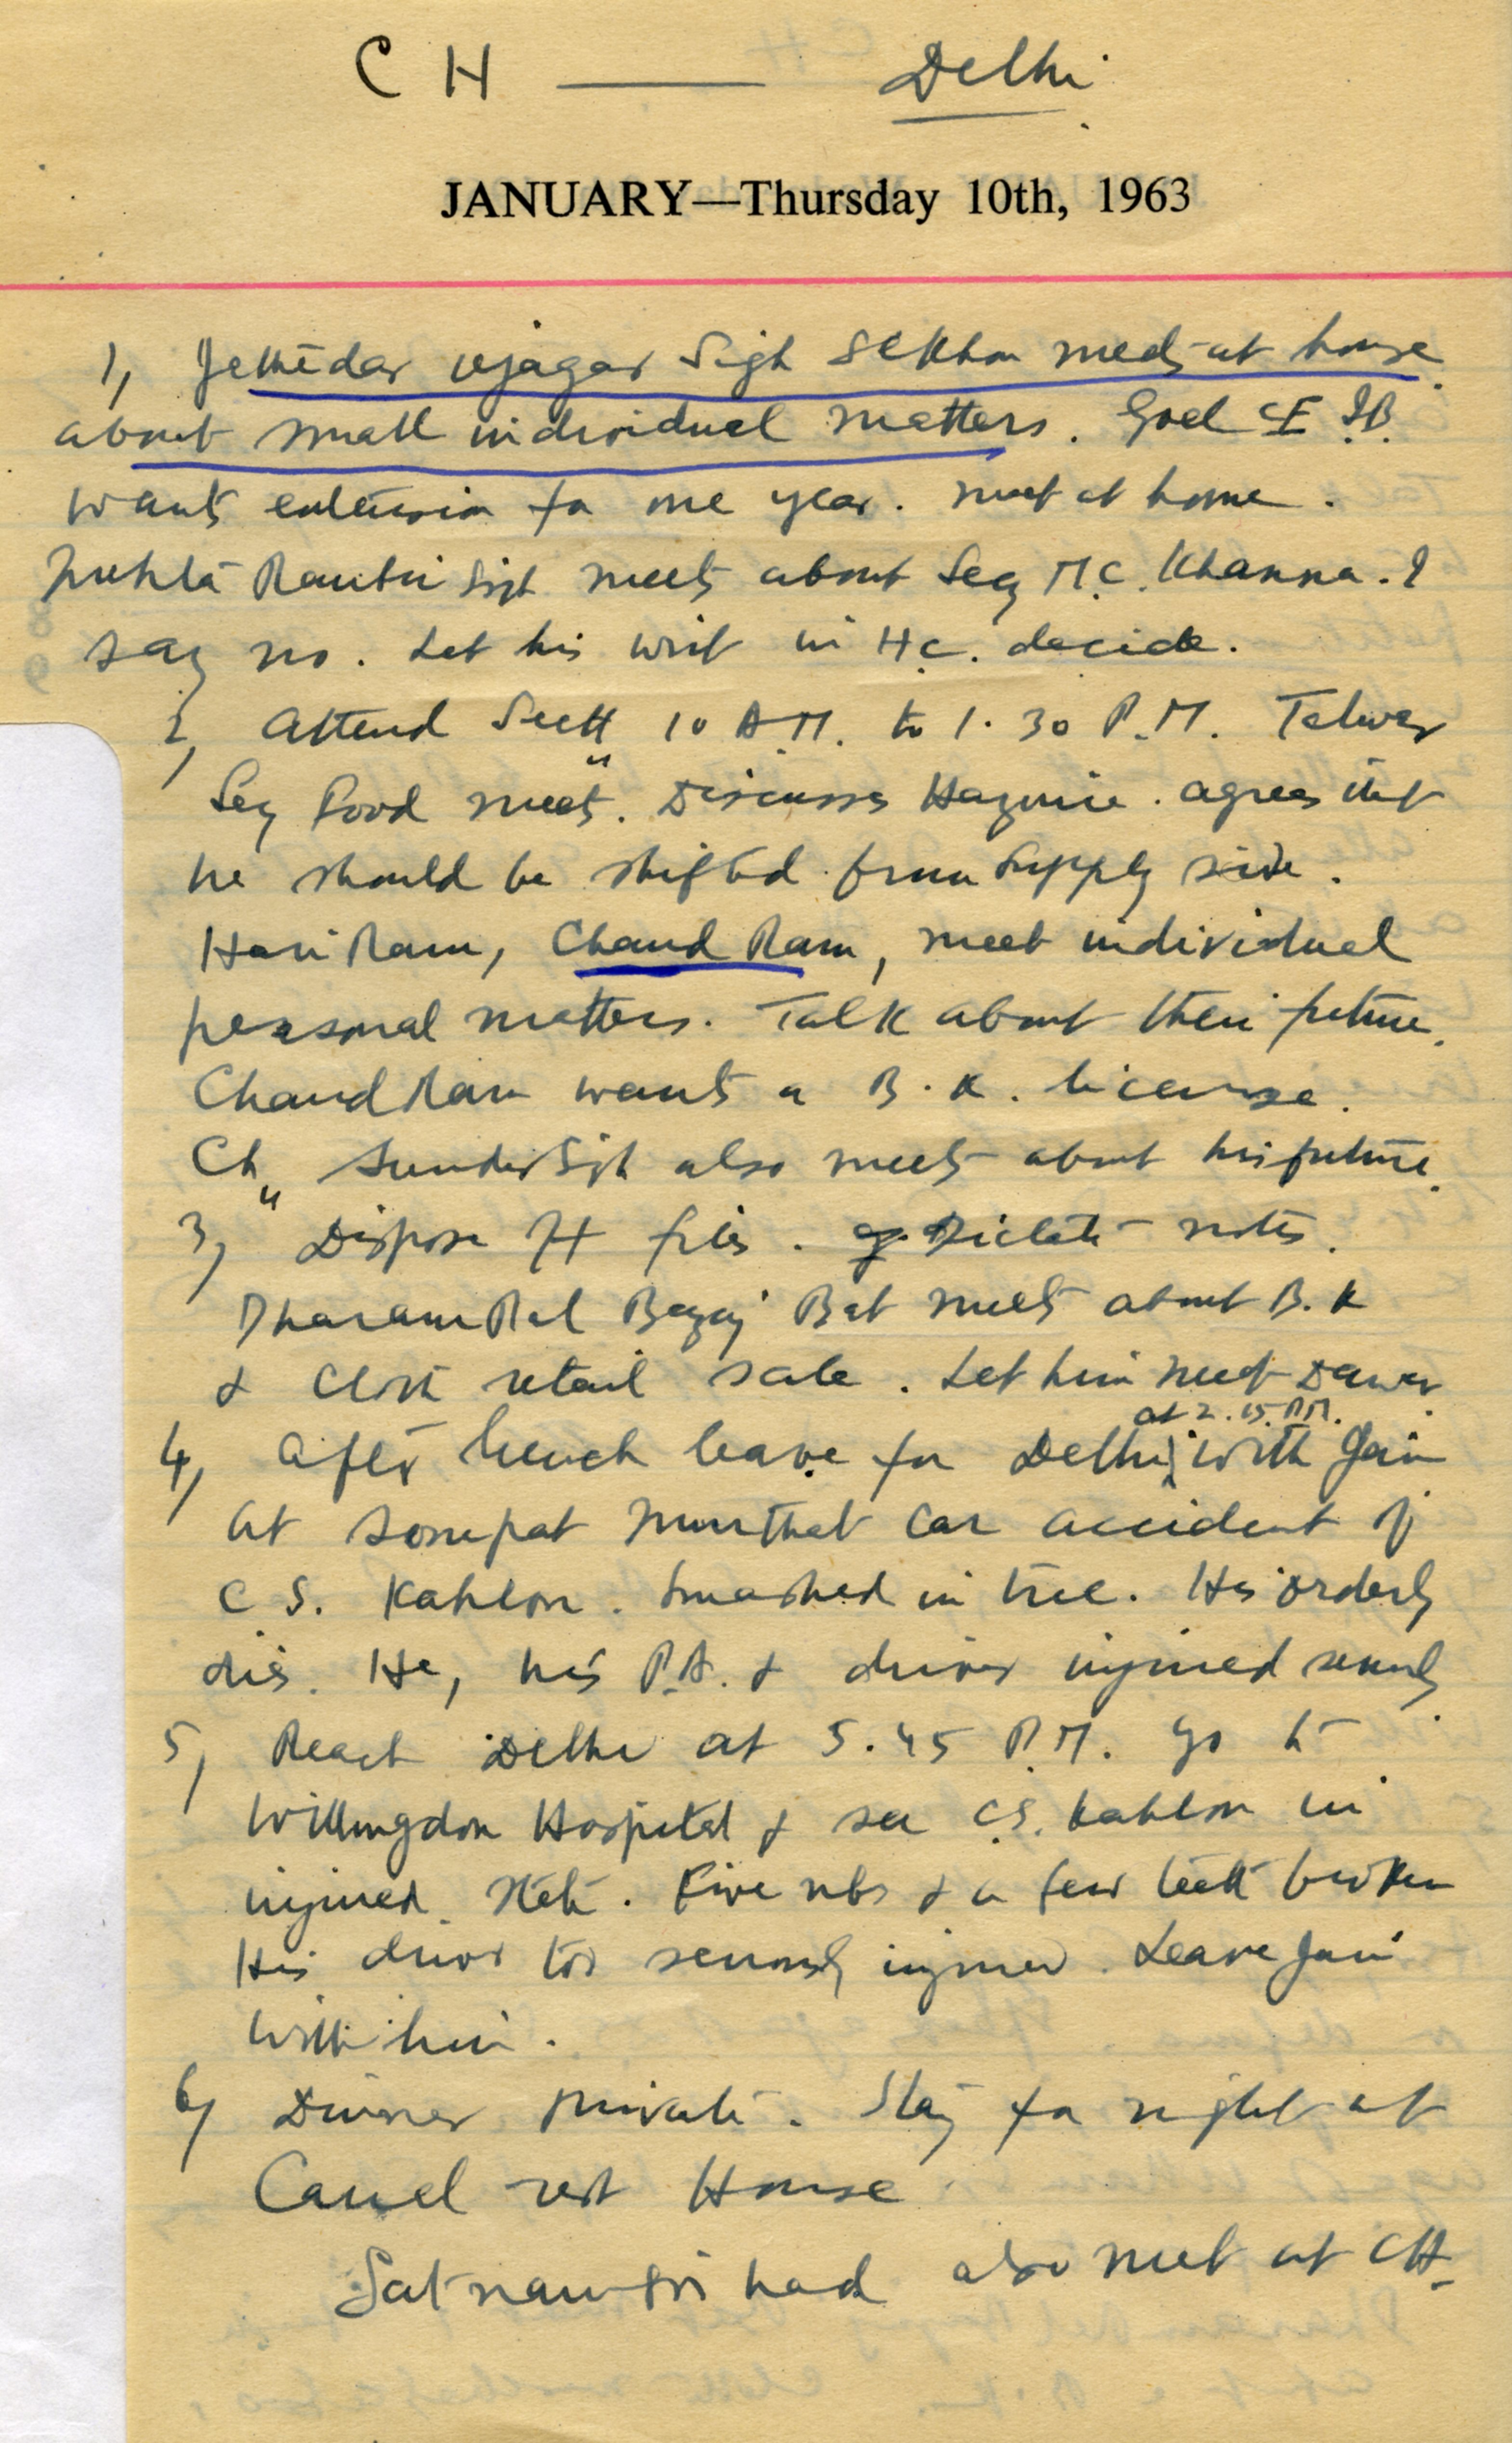 CH — Delhi
JANUARY—Thursday 10th, 1963
1, Jethedar Ujagar Sigh Sekhon meets at house
about small individual matters. Goel CE I.B.
wants extension for one year. meet at home.
Ranbir Sigh meets about Secy M.C. Khanna. I
say no. Let his writ in H.C. decide.
2, Attend Sectt 10 A.M. to 1.30 P.M. Talwar
Secy Food meets. Discusses. agrees that
he should be shifted from Supply side.
Hari Ram, Chand Ram, meet individual
personal matters. Talk about their future.
Chand Ram wants a B.K. license.
Ch" Sunder Sigh also meets about his future.
3, Dispose of files. Dictate notes.
Dharam Pal meets about B.K
& Cloth retail sale. Let him meet Dawar.
at 2.15 P.M.
4, After lunch leave for Delhi with Jain
At Sonepat car accident of
C S. Kahlon. Smashed in tree. His orderly
dies. He, his P.A. & driver injured seriously
5, Reach Delhi at 5.45 P.M. Go to
Willingdon Hospital & see C.S. Kahlon in
injured state. Five ribs & a few teeth broken
His driver too seriously injured. Leave Jain
with him.
6, Dinner private. Stay for night at
Canal rest House
had also meet at CH.